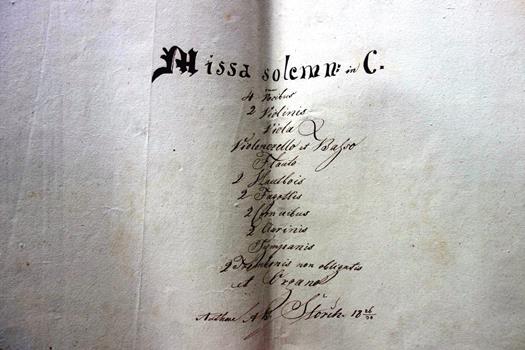 Missa solemn: in C.
4 Vocibus
2 Violinis
Viola
Violoncello et Basso
Flauto
2 Hautbois
2 Fagottis
2 Cornibus
2 Clarinis
Tympanis
2 Trombonis non obligatis
et Organo
Authore A. Storch 18 26/30